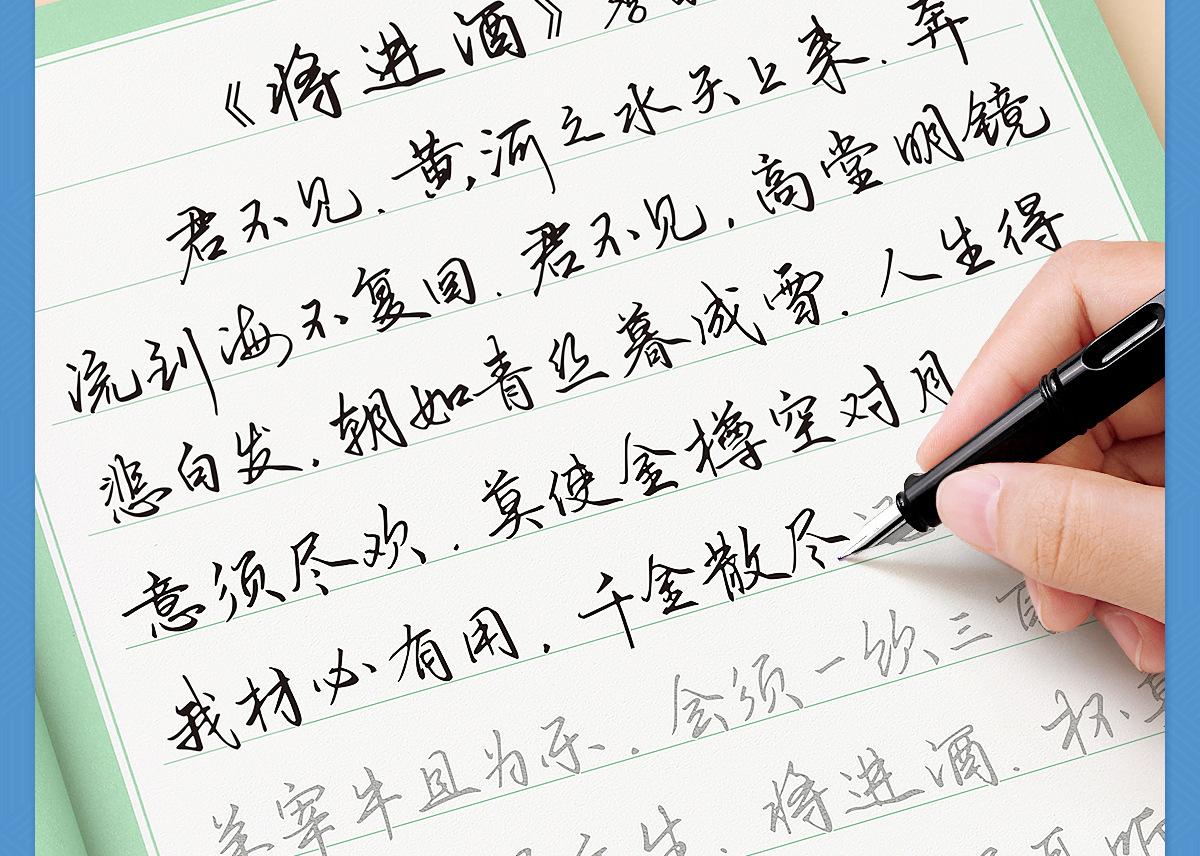 《将进酒》
君不见，黄河之水天上来，奔
流到海不复回，君不见，高堂明镜
悲白发，朝如青丝暮成雪，人生得
意须尽欢，莫使金樽空对月
我材必有用，千金散尽
羊宰牛且为乐，会须一饮三百
生，将进酒，杯莫
耳听